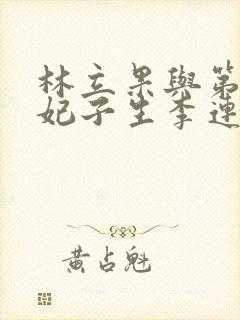 林立果與第
妃子生李連
黃占魁